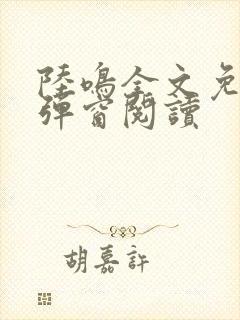 陸鳴全文免
彈窗閱讀
胡嘉許